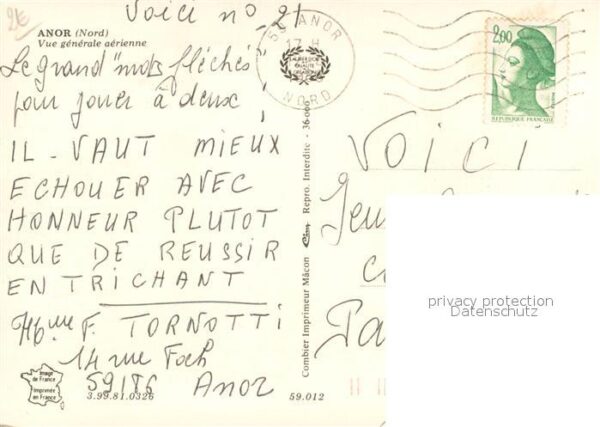 2€
Voici n° 21
ANOR (Nord)
Vue générale aérienne
Le grand "mots fléchés"
pour jouer à deux
IL-VAUT MIEUX
ECHOUER AVEC
HONNEUR PLUTOT
QUE DE REUSSIR
EN TRICHANT
F. TORNOTTI
14 rue Foch
59186 Anor
Image de France
Imprimée en France
3.99.81.0326
59.012
Combier Imprimeur Mâcon Repro. Interdite - 36-00
59 ANOR
17 H
NORD
2,00
REPUBLIQUE FRANÇAISE
VOICI
Jeu
Pa
privacy protection
Datenschutz